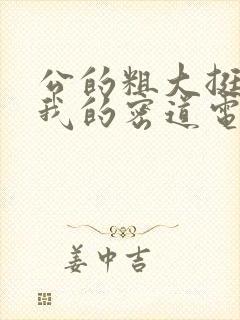 公的粗大挺
我的密道電
姜中吉